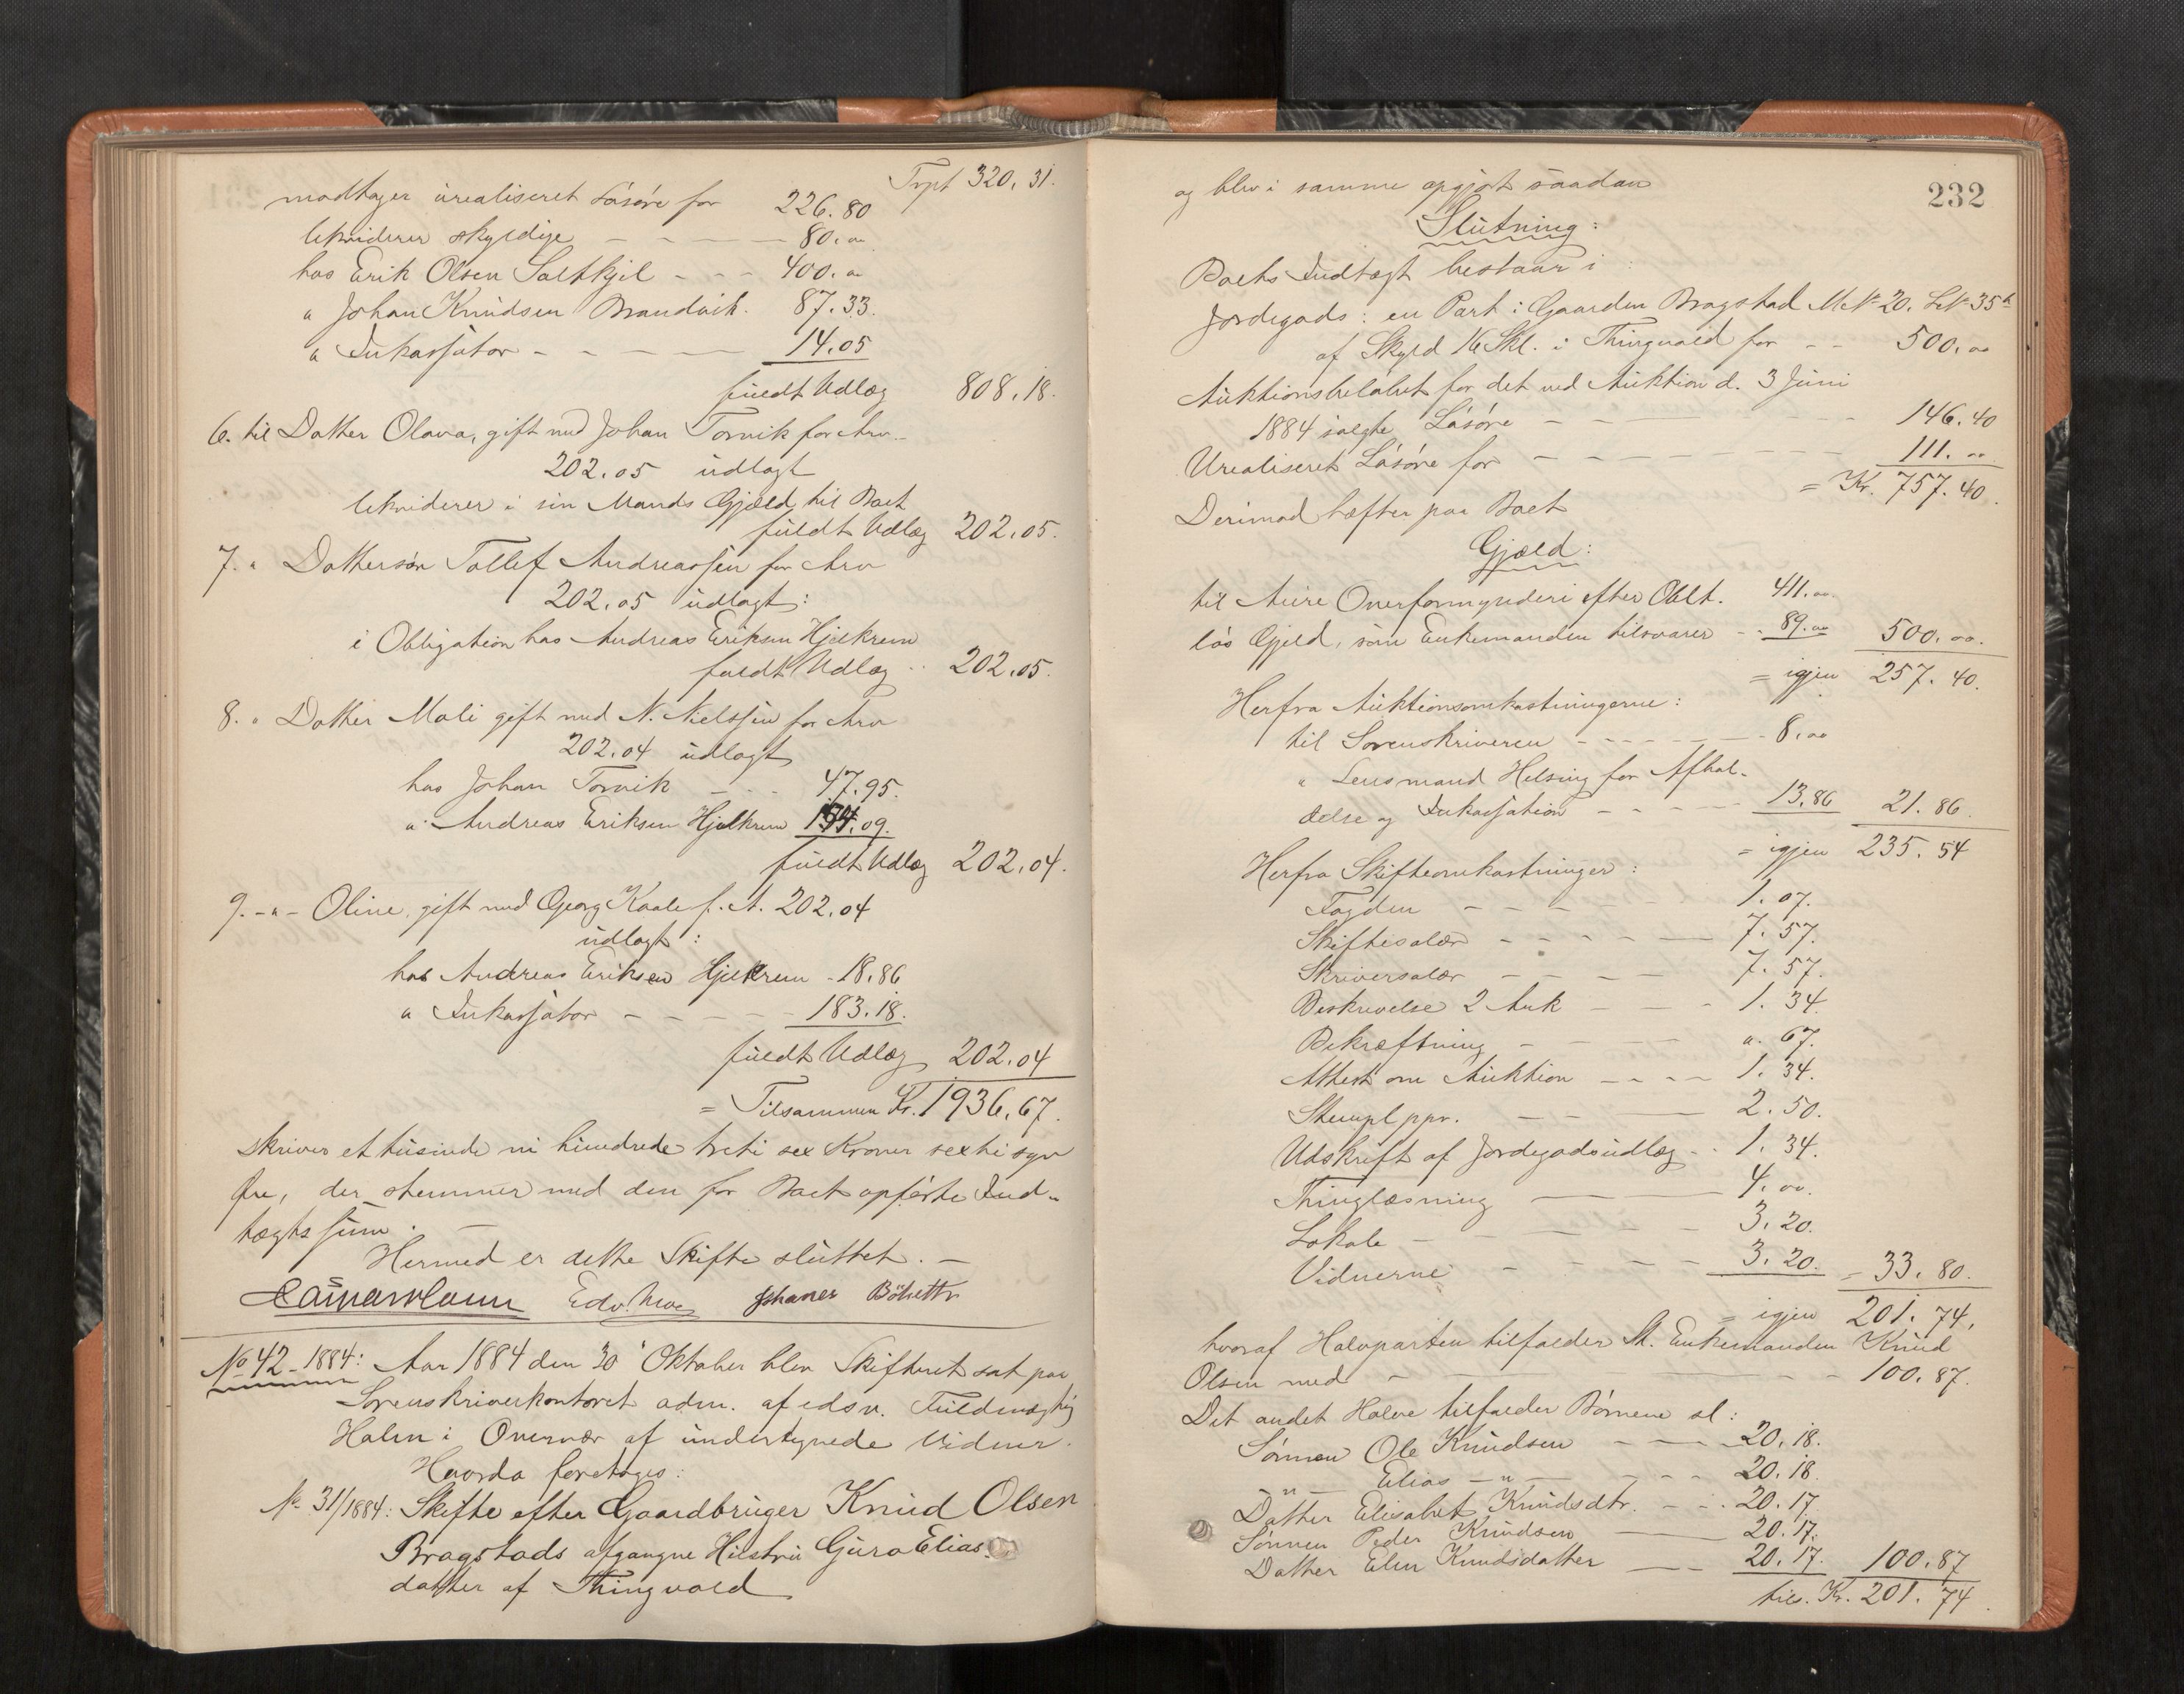 Trpt 320.31.
modtager urealiseret Løsøre for 226.80
likviderer skyldige - - - 80.00
hos Erik Olsen Saltkjel - - - 400.00
" Johan Knudsen Brandvik. 87.33.
" Inkassator - - - - 14.05
fuldt Udlæg 808.18.
6. til Datter Olava, gift med Johan Torvik for Arv
202.05 udlagt
likviderer i sin Mands Gjæld til Boet
fuldt Udlæg 202.05.
7. " Dattersøn Tollef Andreassen for Arv
202.05 udlagt:
i Obligation hos Andreas Eriksen Hjelkrem
fuldt Udlæg 202.05.
8. " Datter Mali gift med N. Nielssen for Arv
202.04 udlagt
hos Johan Torvik - - - 47.95.
" Andreas Eriksen Hjelkrem 154.09.
fuldt Udlæg 202.04.
9. - " - Oline, gift med Georg Kaale f. A. 202.04
udlagt:
hos Andreas Eriksen Hjelkrem - 18.86
" Inkassator - - - - 183.18.
fuldt Udlæg 202.04
= Tilsammen Kr. 1936.67.
skriver et tusinde ni hundrede treti sex Kroner sexti syv
Øre, der stemmer med den for Boet opførte Ind-
tægtssum. -
Hermed er dette Skifte sluttet. -
Edv. Johannes
No 42-1884: Aar 1884 den 30' Oktober blev Skifteret sat paa
Sorenskriverkontoret adm. af edsv. Fuldmægtig
Holm i Overvær af undertegnede Vidner.
Hvorda foretoges:
No. 31/1884: Skifte efter Gaardbruger Knud Olsen
Bragstads afgangne Hustru Guro Elias-
datter af Thingvold
232
og blev i samme opgjort saadan
Slutning:
Boets Indtægt bestaar i:
Jordegods: en Part i Gaarden Bragstad M.No 20. L.No 35b
af Skyld 16 Skl. i Thingvold for - - 500.00
Auktionsbeløbet for det ved Auktion d. 3 Juni
1884 solgte Løsøre - - - - 146.40
Urealiseret Løsøre for - - - - - 111.00
= Kr. 757.40.
Derimod hæfter paa Boet
Gjæld:
til Aure Overformynderi efter Oblt. 411.00.
løs Gjeld, som Enkemanden tilsvarer - 89.00 500.00.
= igjen 257.40.
Herfra Auktionsomkostningerne:
til Sorenskriveren - - - - - 8.00
" Lensmand Helsing for Afhol-
delse og Inkassation - - - - 13.86 21.86.
= igjen 235.54
Herfra Skifteomkostninger:
Fogden - - - - - 1.07.
Skiftesalær - - - - - 7.57.
Skriversalær - - - - 7.57.
Beskrivelse 2 Ark - - - 1.34.
Bekræftning - - - - ". 67.
Attest om Auktion - - - - 1.34.
Stempl. ppr. - - - 2.50.
Udskrift af Jordegodsudlæg - 1.34.
Thinglæsning - - 4.00.
Lokale - - - - 3.20.
Vidnerne - - - - 3.20. = 33.80.
= igjen 201.74.
hvoraf Halvparten tilfalder St. Enkemanden Knud
Olsen med - - - - - 100.87.
Det andet Halve tilfalder Børnene sl:
Sønnen Ole Knudsen - - - 20.18.
" Elias - " - - - - 20.18
Datter Elisabet Knudsdtr. - - - 20.17.
Sønnen Peder Knudsen - - 20.17.
Datter Elen Knudsdatter - - 20.17. 100.87
tils. Kr. 201.74.